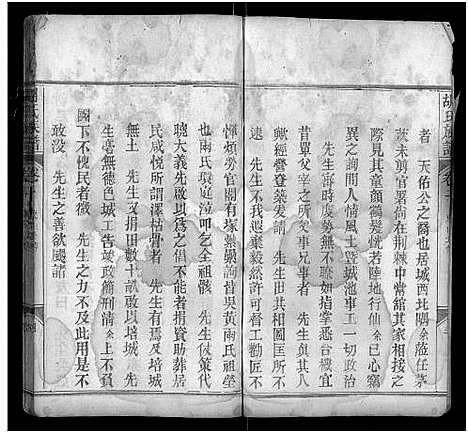 胡氏族譜
者 天佑公之裔也居城西北隅余蒞任茅
茨未剪官署尚在荆棘中常館其家相接之
際見其童顏鶴髮恍若陸地行仙余已心竊
異之詢問人情風土暨城池事工一切政治
昔時沿海度勢無不瞭如指掌悉合機宜
單父宰之所父事兄事者 先生與其人
歟經營登築爰請 先生出其相圖匡所不
逮 先生不我遐棄毅然許可督工勸匠不
憚煩勞官閣有塚纍纍詢昔吳黃兩氏祖塋
也兩氏環庭泣叩乞全祖骸 先生仗策代
聰大義先啟以為之倡不能者捐資助葬居
民咸悅所謂澤枯骨者 先生有焉及培城
無土 先生又捐田數十畝啟以培城 先
生毫無德色城工告竣政簡刑清余上不負
國下不愧民者徵 先生之力不及此用是不
敢沒 先生之善欲颺諸